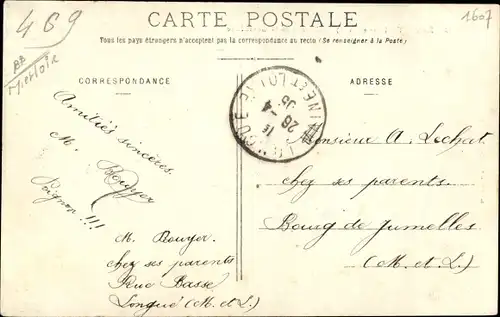 469
BB
Mietloir
1607
CARTE POSTALE
Tous les pays étrangers n'acceptent pas la correspondance au recto (Se renseigner à la Poste)
CORRESPONDANCE
ADRESSE
Amitiés sincères.
M. Rouyer
Poignon !!!
M. Rouyer.
chez ses parents
Rue Basse
Longué (M. et L.)
LONGUÉ
MAINE ET LOIRE
1E
26 -4
05
Monsieur A. Lechat.
chez ses parents.
Bourg de Jumelles
(M. et L.)